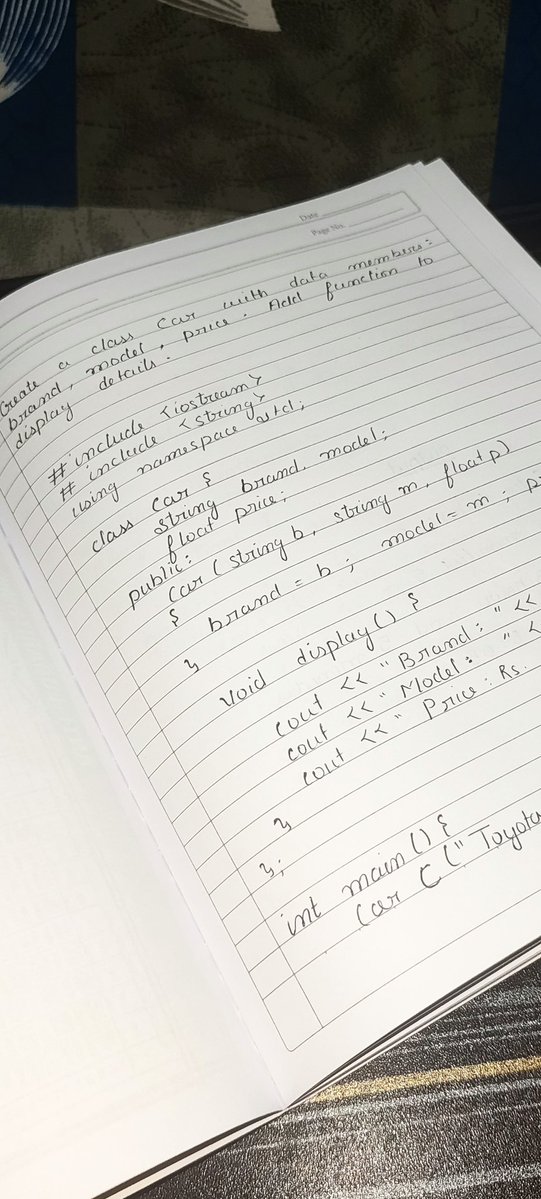 Date
Page No.
Create a class Car with data members:
brand, model, price. Add function to
display details.
# include <iostream>
# include <string>
using namespace std;
class Car {
string brand, model;
float price;
public:
Car (string b, string m, float p)
{ brand = b; model = m; p
}
void display() {
cout << "Brand: " <<
cout << "Model: " <
cout << "Price: Rs.
}
};
int main() {
Car C ("Toyota